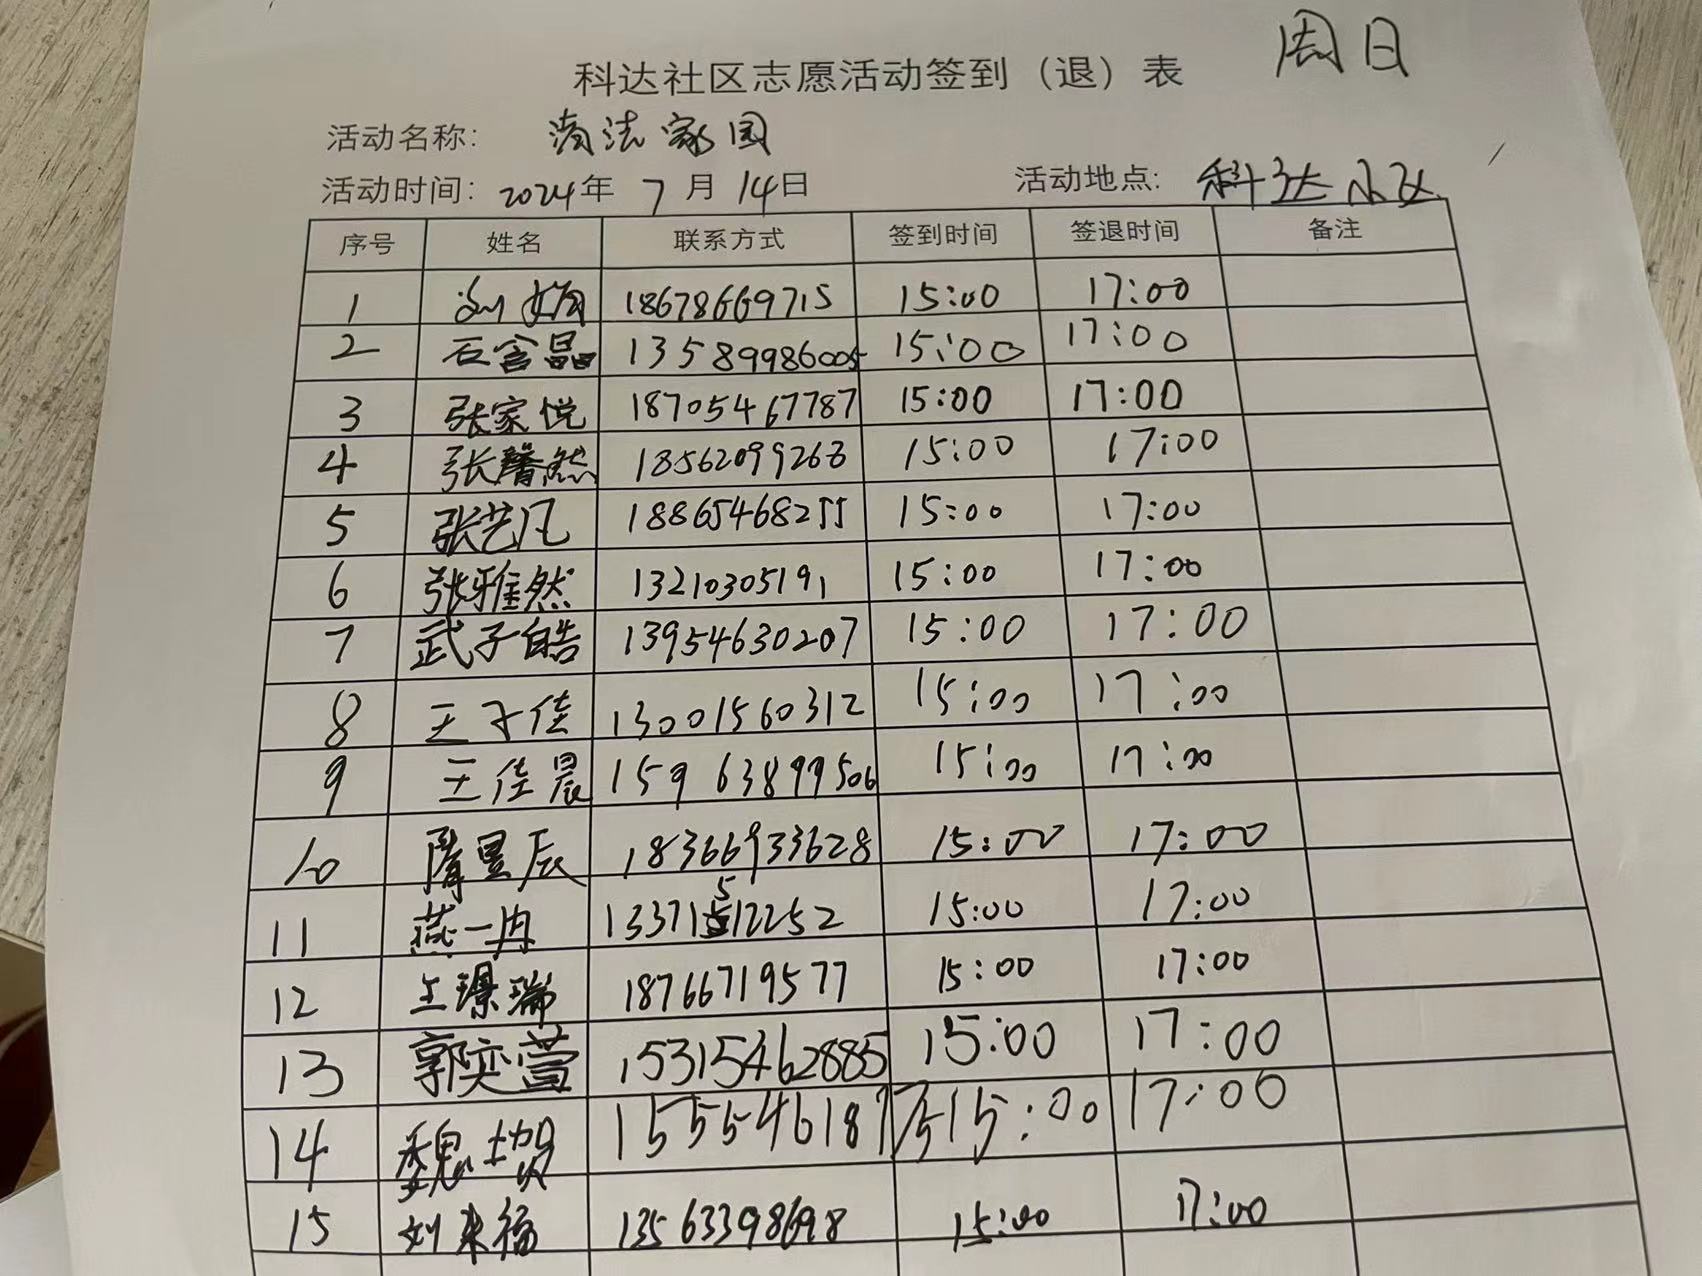 周日
科达社区志愿活动签到（退）表
活动名称： 清洁家园
活动时间：2024年 7 月 14日 活动地点：科达小区
序号 姓名 联系方式 签到时间 签退时间 备注
1 刘 18678669715 15:00 17:00
2 石含晶 13589986005 15:00 17:00
3 张家悦 18705467787 15:00 17:00
4 张馨然 18562099268 15:00 17:00
5 张艺凡 18865468255 15:00 17:00
6 张雅然 13210305191 15:00 17:00
7 武子皓 13954630207 15:00 17:00
8 王子佳 13001560312 15:00 17:00
9 王佳晨 15963899506 15:00 17:00
10 隋昱辰 18366933628 15:00 17:00
11 燕一冉 13371512252 15:00 17:00
12 王璟瑞 18766719577 15:00 17:00
13 郭奕萱 15315462885 15:00 17:00
14 魏 15:00 17:00
15 刘来福 13563398698 15:00 17:00